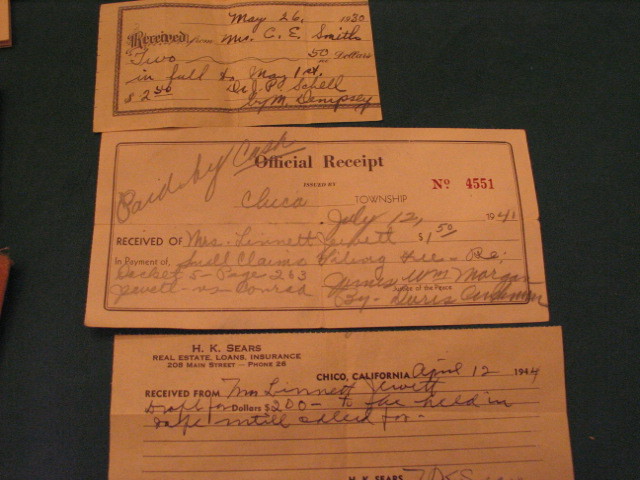 May 26, 1930
Received from Mrs. C. E. Smith
Two 50 Dollars
in full to May 1st.
$ 2 50 Dr J. P. Schell
by M. Dempsey
Paid by Cash
Official Receipt
ISSUED BY
No 4551
Chico TOWNSHIP
July 12, 1941
RECEIVED OF Mrs. Linnett Jewett $1 50
In Payment of Small Claims Filing Fee - Re:
Docket 5 - Page 263
Jewett - vs - Conrad
James Wm Morgan
Justice of the Peace
By - Doris
H. K. SEARS
REAL ESTATE, LOANS, INSURANCE
208 MAIN STREET — PHONE 26
CHICO, CALIFORNIA April 12 1944
RECEIVED FROM Mrs Linnett Jewett
Draft for Dollars $ 200 - to be held in
safe untill called for -
H. K. SEARS